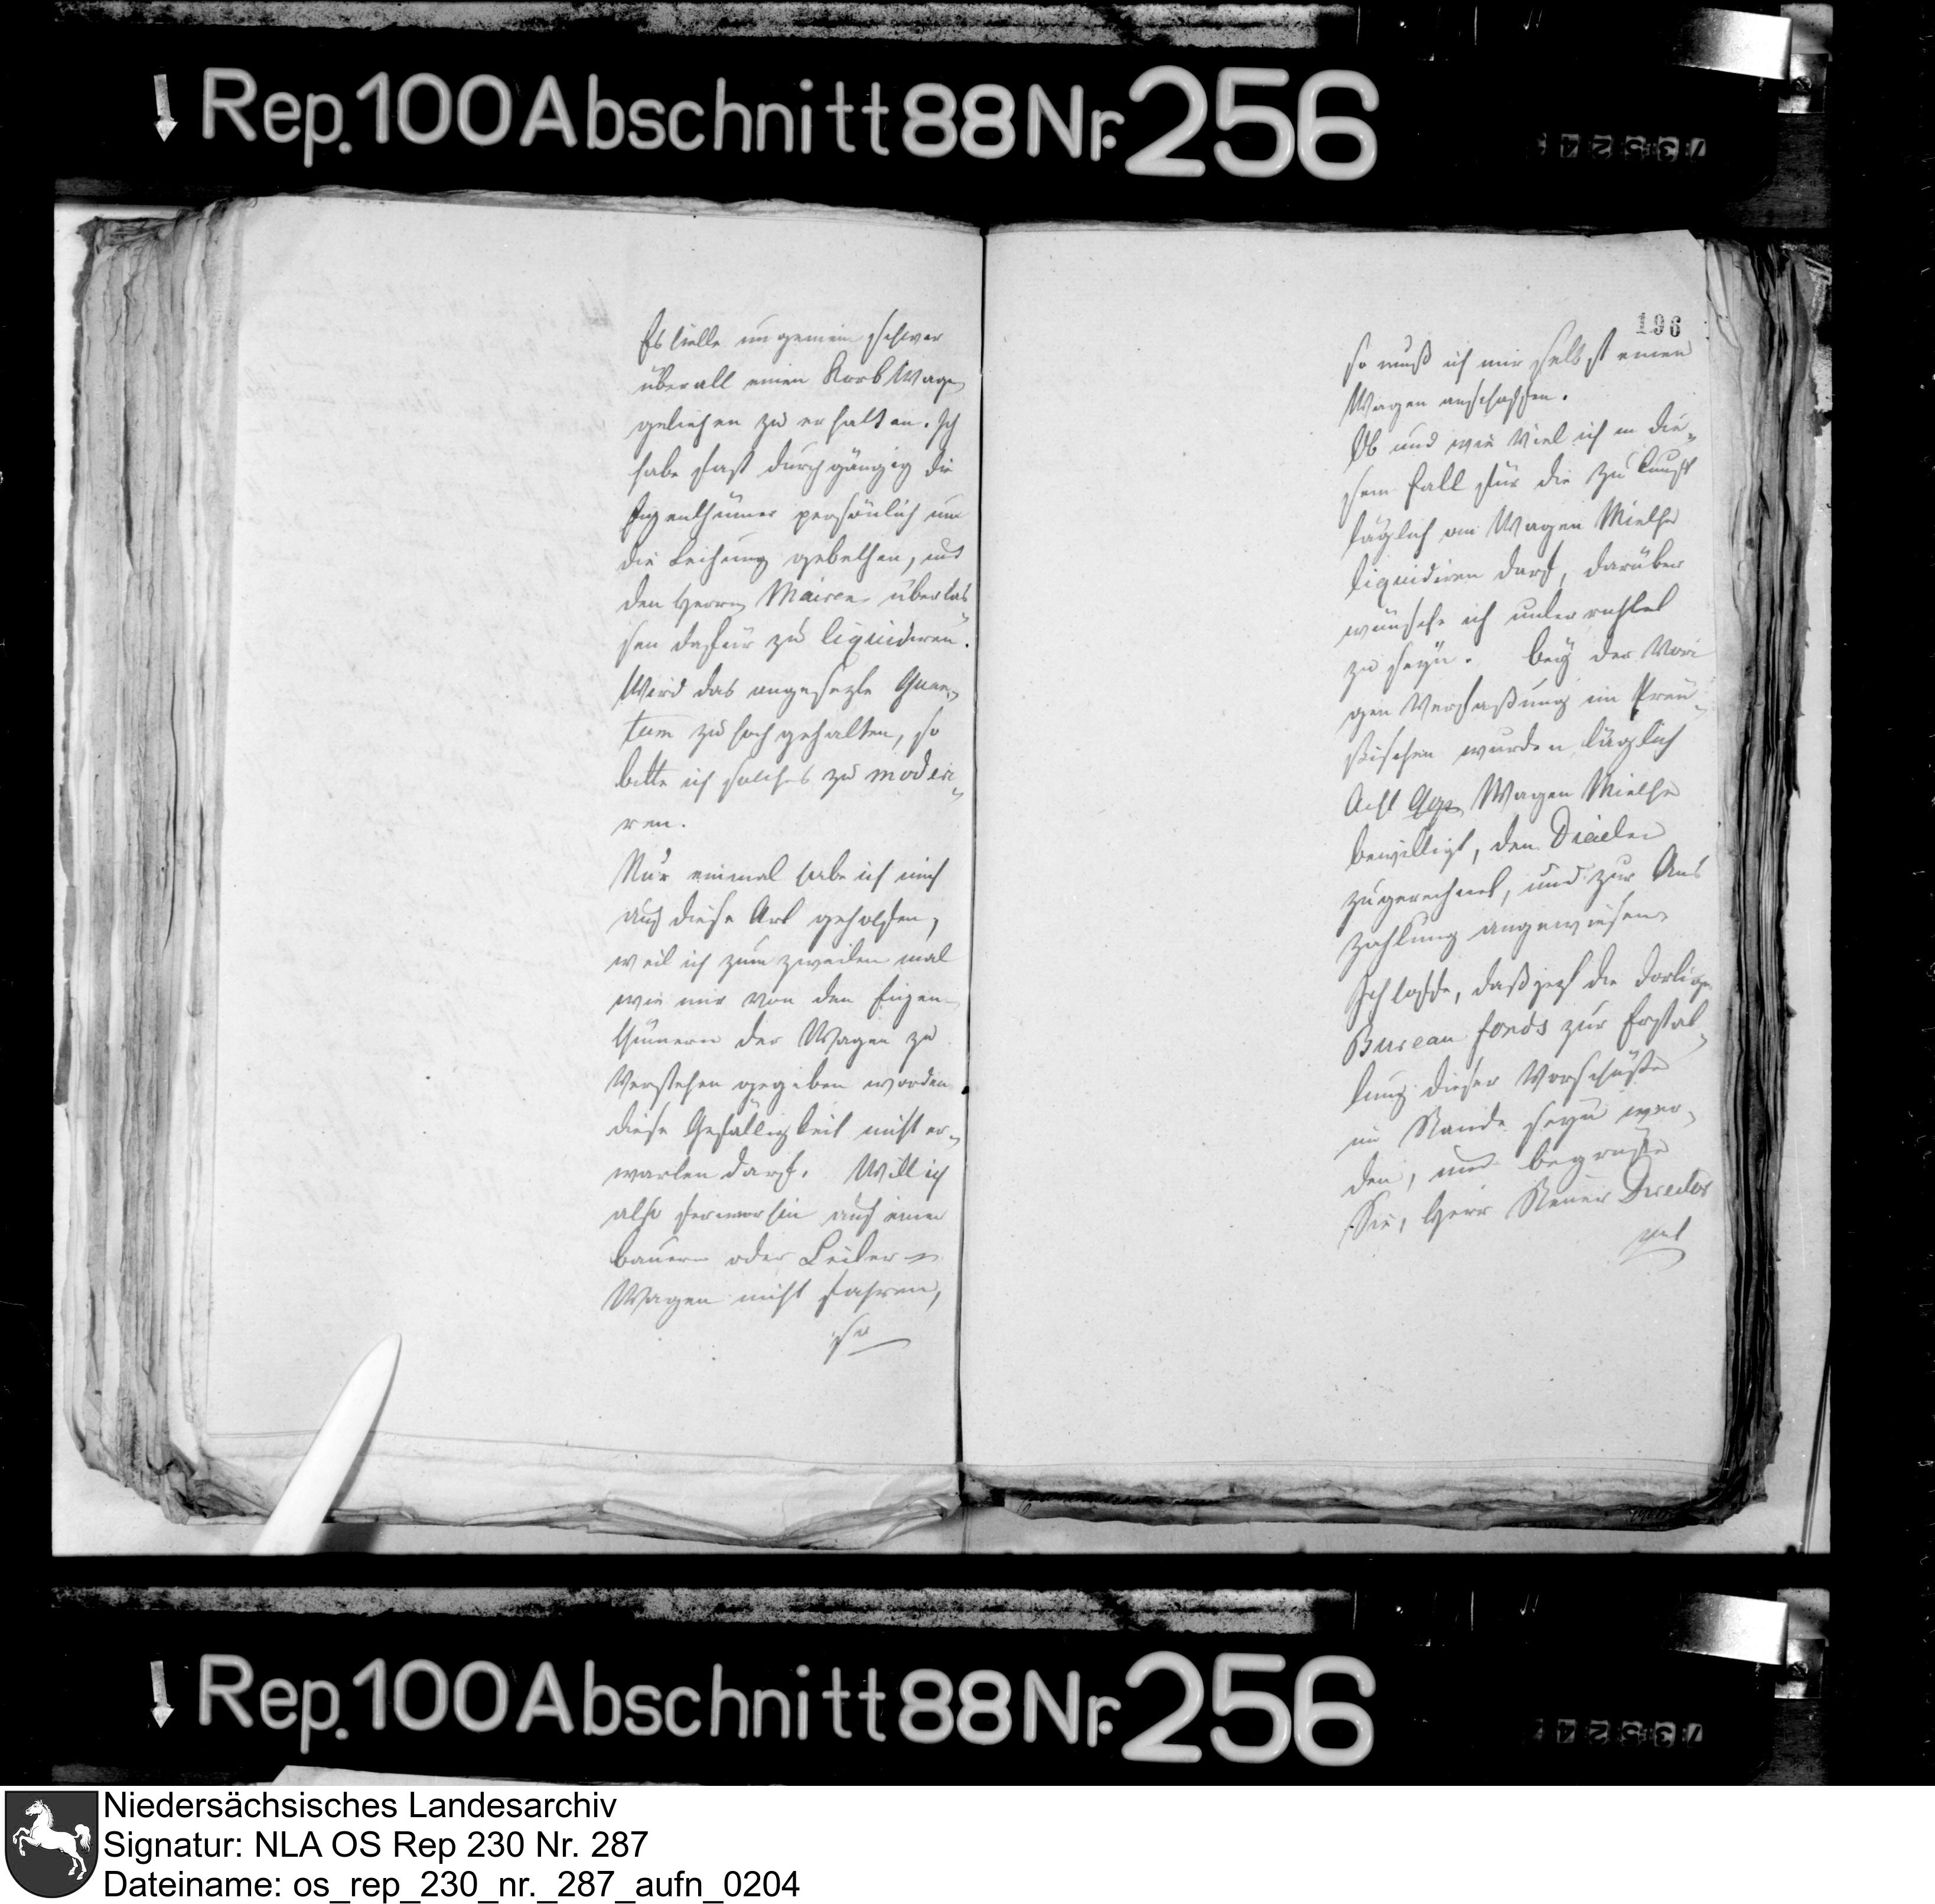 Rep. 100 Abschnitt 88 Nr. 256
73524
Es hielte ungemein schwer
überall einen Korb Wagen
geliehen zu erhalten. Ich
habe fast durchgängig die
Eigenthümer persönlich um
die Leihung gebethen, und
den Herrn Mairen überlas
sen dafür zu liquidiren.
Wird das angesezte Quan„
tum zu hoch gehalten, so
bitte ich solches zu modiri„
ren.
Nur einmal habe ich mich
auf diese Art geholfen,
weil ich zum zweiten mal
wie mir von den Eigen„
thümern der Wagen zu
Verstehen gegeben worden
diese Gefälligkeit nicht er„
warten darf. Will ich
also fernerhin auf einen
bauern oder Leiter
Wagen nicht fahren,
so
196
so muß ich mir selbst einen
Wagen anschaffen.
Ob und wie Viel ich in die„
sem Fall für die Zukunft
täglich an Wagen Miethe
liquidiren darf, darüber
wünsche ich unterrichtet
zu seyn. bey der Vori
gen Verfaßung im Preu„
ßischen wurden täglich
Acht Wagen Miethe
bewilligt, den Diäten
zugerechnet, und zur Aus
zahlung angewiesen.
Ich hoffe, daß jezt die dortige
Bureau fonds zur Erstat„
tung dieser Vorschüße
im Stande seyn wer„
den, und begrüße
Sie, Herr Steuer Director
mit
Rep. 100 Abschnitt 88 Nr. 256
73524
Niedersächsisches Landesarchiv
Signatur: NLA OS Rep 230 Nr. 287
Dateiname: os_rep_230_nr._287_aufn_0204